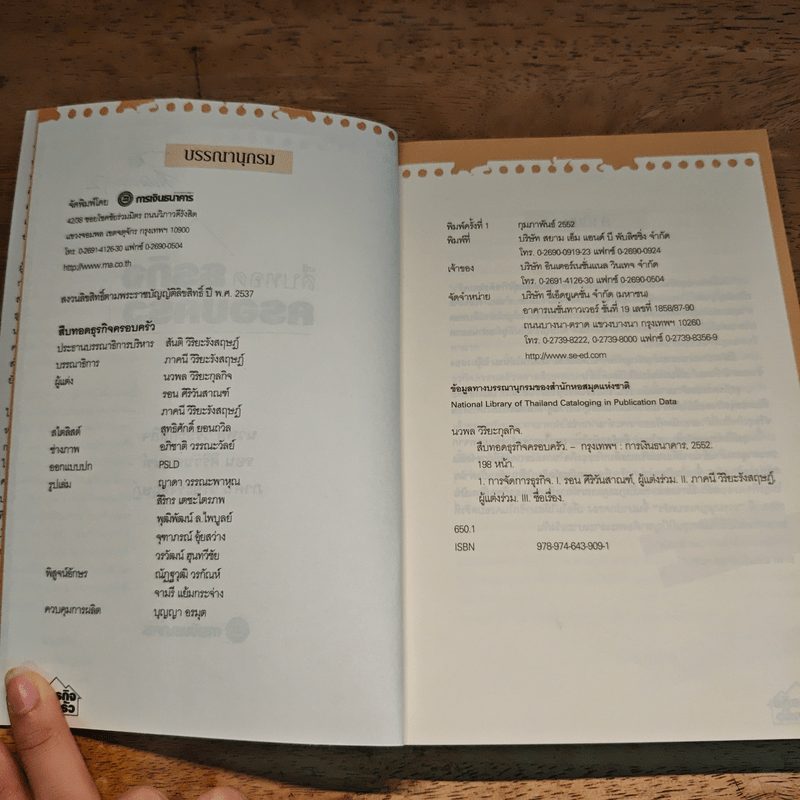 บรรณานุกรม
จัดพิมพ์โดย การเงินธนาคาร
42/38 ซอยโชคชัยร่วมมิตร ถนนวิภาวดีรังสิต
แขวงจอมพล เขตจตุจักร กรุงเทพฯ 10900
โทร. 0-2691-4126-30 แฟกซ์ 0-2690-0504
http://www.ma.co.th
สงวนลิขสิทธิ์ตามพระราชบัญญัติลิขสิทธิ์ ปี พ.ศ. 2537
สืบทอดธุรกิจครอบครัว
ประธานบรรณาธิการบริหาร สันติ วิริยะรังสฤษฎ์
บรรณาธิการ ภาคนี วิริยะรังสฤษฎ์
ผู้แต่ง นวพล วิริยะกุลกิจ
รอน ศิริวันสาณฑ์
ภาคนี วิริยะรังสฤษฎ์
สไตลิสต์ สุทธิศักดิ์ ยอนถวิล
ช่างภาพ อภิชาติ วรรณะวัลย์
ออกแบบปก PSLD
รูปเล่ม ญาดา วรรณะพาหุณ
สิริกร เตชะไตรภพ
พุฒิพัฒน์ ล.ไพบูลย์
จุฑาภรณ์ อุ้ยสว่าง
วรวัฒน์ ฮุนทวีชัย
พิสูจน์อักษร ณัฏฐวุฒิ วรกัณห์
จามรี แย้มกระจ่าง
ควบคุมการผลิต บุญญา อรมุต
รกิจ
รัว
พิมพ์ครั้งที่ 1 กุมภาพันธ์ 2552
พิมพ์ที่ บริษัท สยาม เอ็ม แอนด์ บี พับลิชชิ่ง จำกัด
โทร. 0-2690-0919-23 แฟกซ์ 0-2690-0924
เจ้าของ บริษัท อินเตอร์เนชั่นแนล วินเทจ จำกัด
โทร. 0-2691-4126-30 แฟกซ์ 0-2690-0504
จัดจำหน่าย บริษัท ซีเอ็ดยูเคชั่น จำกัด (มหาชน)
อาคารเนชั่นทาวเวอร์ ชั้นที่ 19 เลขที่ 1858/87-90
ถนนบางนา-ตราด แขวงบางนา กรุงเทพฯ 10260
โทร. 0-2739-8222, 0-2739-8000 แฟกซ์ 0-2739-8356-9
http://www.se-ed.com
ข้อมูลทางบรรณานุกรมของสำนักหอสมุดแห่งชาติ
National Library of Thailand Cataloging in Publication Data
นวพล วิริยะกุลกิจ.
สืบทอดธุรกิจครอบครัว. – กรุงเทพฯ : การเงินธนาคาร, 2552.
198 หน้า.
1. การจัดการธุรกิจ. I. รอน ศิริวันสาณฑ์, ผู้แต่งร่วม. II. ภาคนี วิริยะรังสฤษฎ์,
ผู้แต่งร่วม. III. ชื่อเรื่อง.
650.1
ISBN 978-974-643-909-1